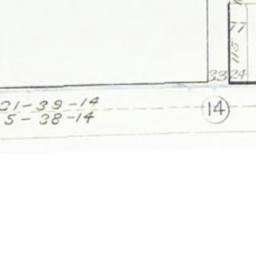 77
115
33 24
21-39-14
5-38-14
14